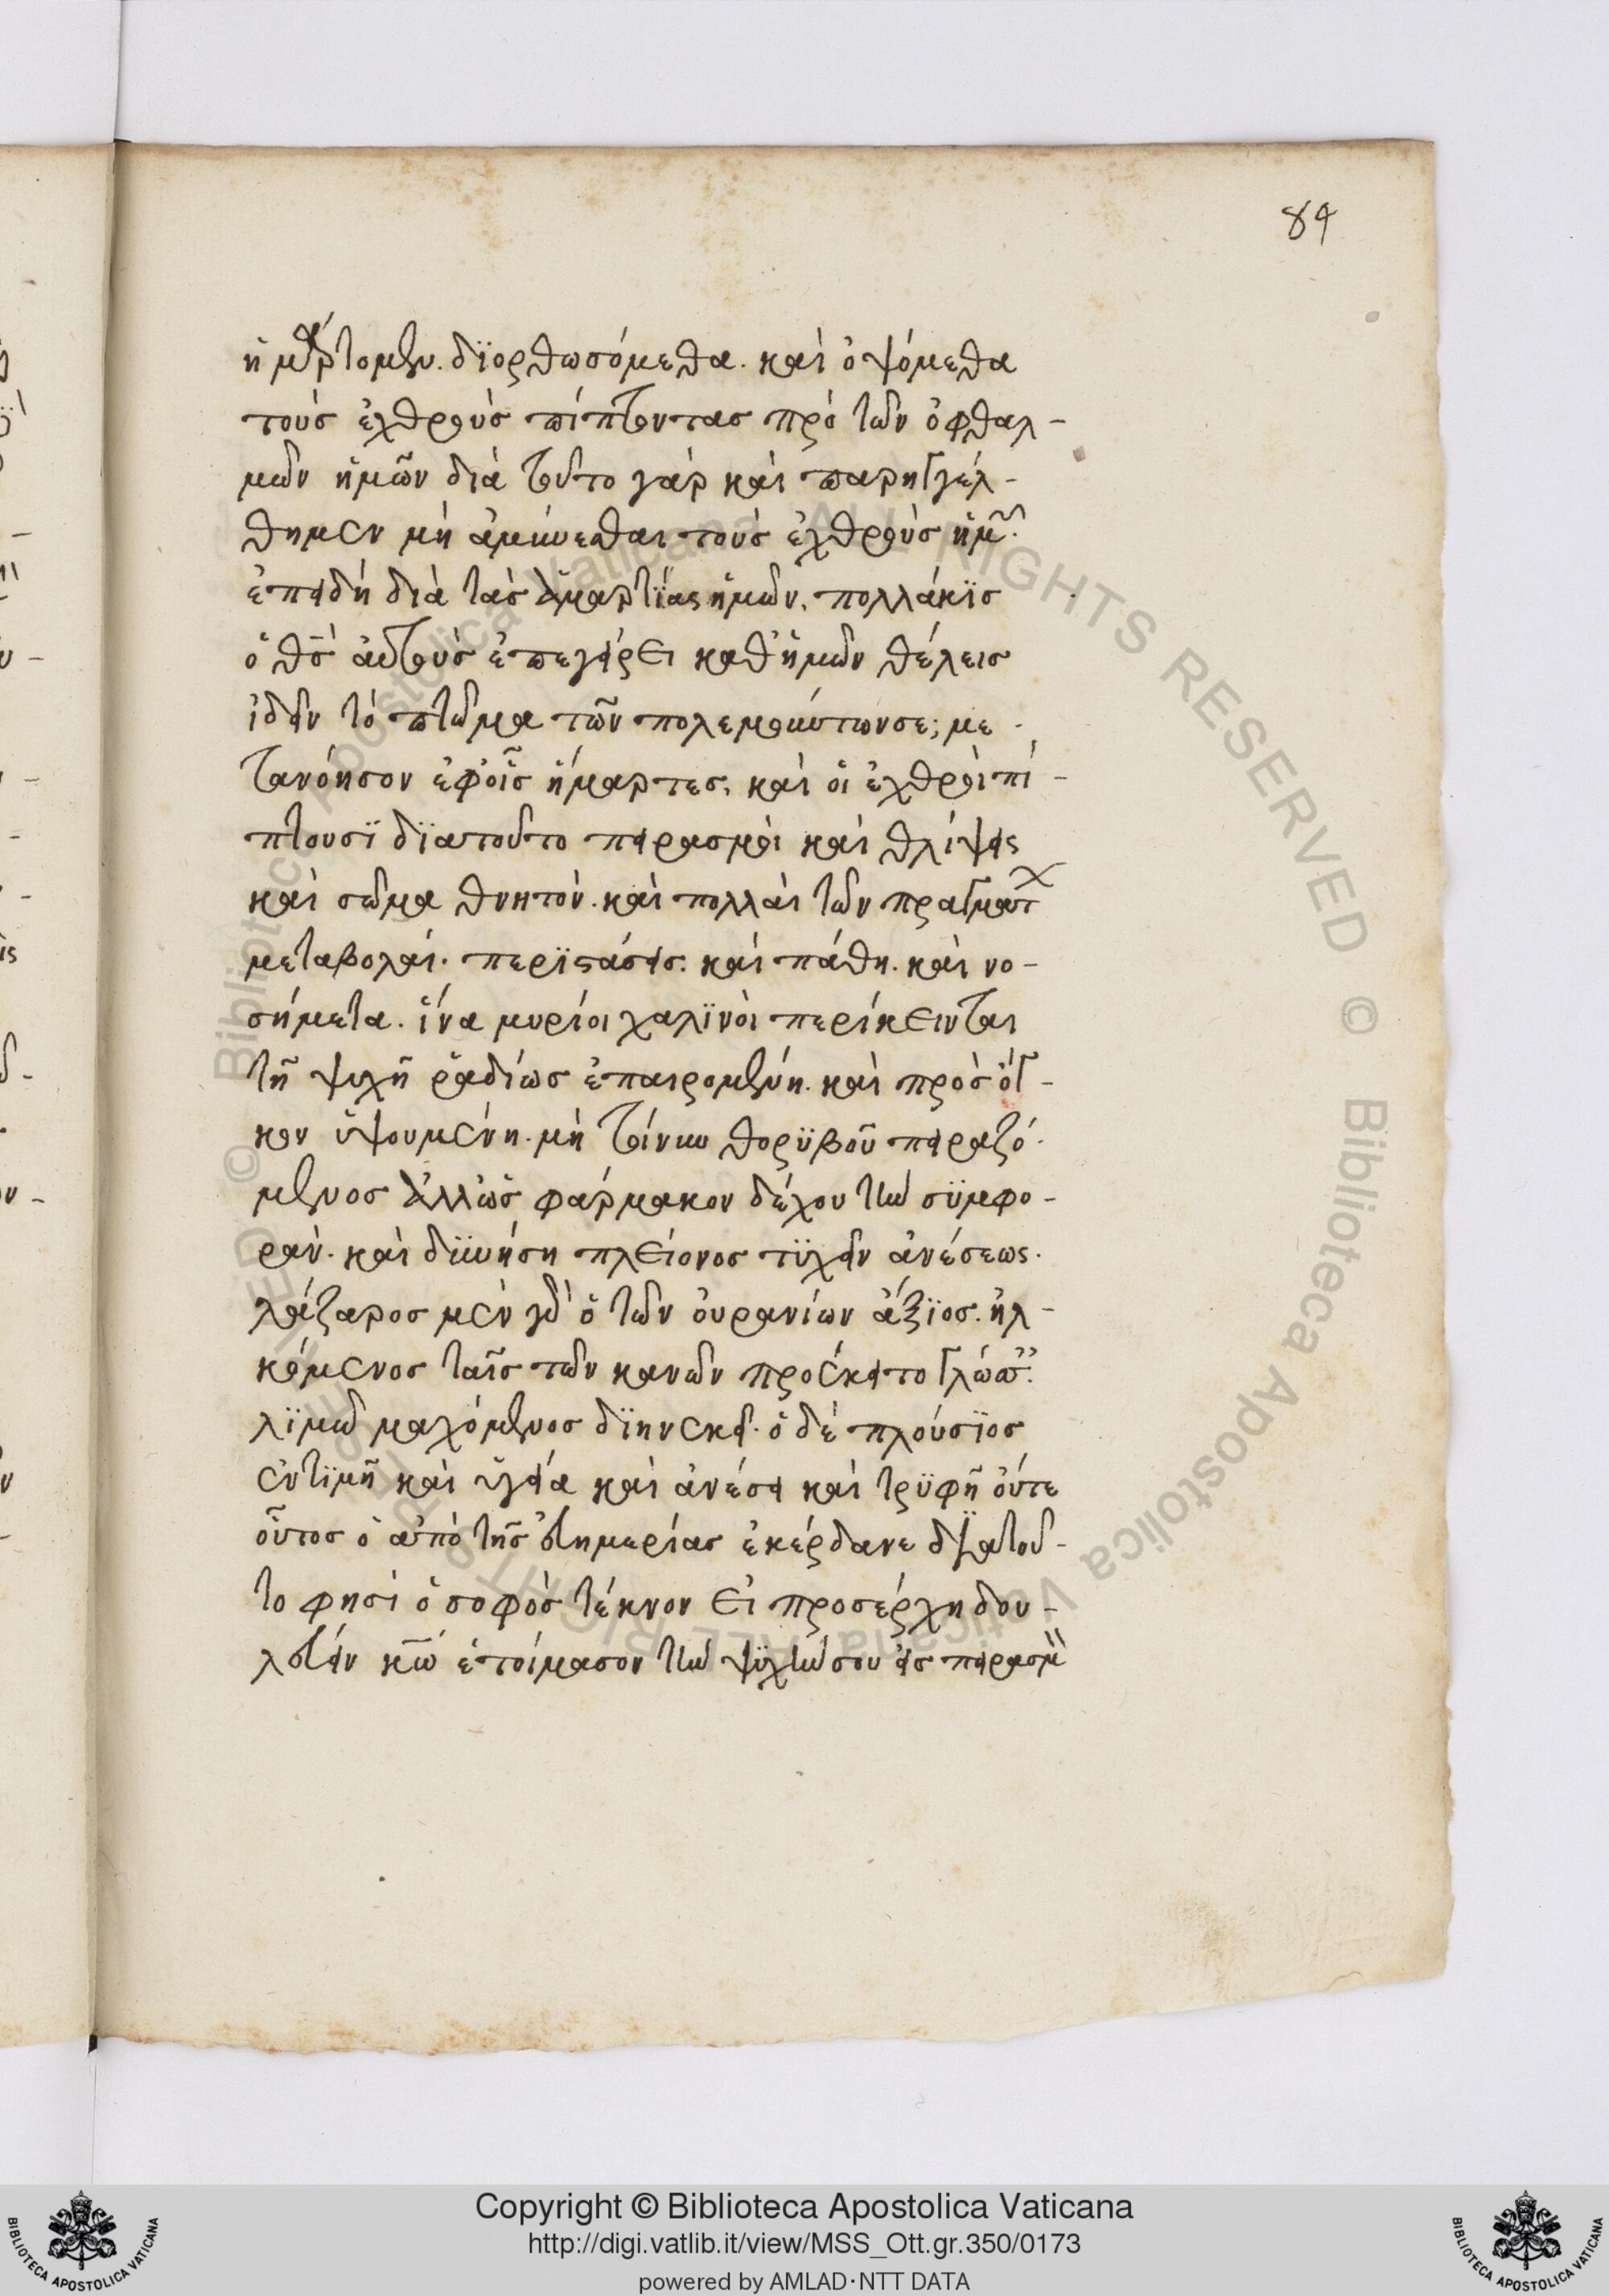 84
ἡμάρτομεν. διορθωσόμεθα. καὶ ὀψόμεθα
τοὺς ἐχθροὺς πίπτοντας πρὸ τῶν ὀφθαλ-
μῶν ἡμῶν διὰ τοῦτο γὰρ καὶ παρηγγέλ-
θημεν μὴ ἀμύνεσθαι τοὺς ἐχθροὺς ἡμ῀.
ἐπειδὴ διὰ τὰς ἁμαρτίας ἡμῶν. πολλάκϊς
ὁ θς αὐτοὺς ἐπεγείρει καθἡμῶν θέλεις
ἰδεῖν τὸ πτῶμα τῶν πολεμούντωνσε; με-
τανόησον ἐφοῖς ἥμαρτες. καὶ οἱ ἐχθροὶ πί-
πτουσϊ δϊατοῦτο πειρασμοὶ καὶ θλίψεις
καὶ σῶμα θνητόν. καὶ πολλαὶ τῶν πραγματ
μεταβολαί. περϊστάσεις. καὶ πάθη. καὶ νο-
σήματα. ἵνα μυρίοι χαλϊνοὶ περίκεινται
τῇ ψυχῇ ῥαδίως ἐπαιρομένη. καὶ πρὸς ὄγ-
κον ὑψουμένη. μὴ τοίνυν θορϋβοῦ πειραζό-
μενος ἀλλὡς φάρμακον δέχου τὴν σϋμφο-
ράν. καὶ δϋνήση πλείονος τϋχεῖν ἀνέσεως.
λάζαρος μὲν γὰρ ὁ τῶν οὐρανίων ἄξϊος. ἡλ-
κόμενος ταῖς τῶν κυνῶν προέκειτο γλώσ.
λϊμῶ μαχόμενος δϊηνεκεῖ. ὁ δὲ πλούσϊος
ἐντϊμῆ καὶ ὑγεία καὶ ἀνέσει καὶ τρϋφῆ οὔτε
οὗτος ὁ ἀπὸ τῆς εὐημερίας ἐκέρδανε δϊατοῦ-
το φησὶ ὁ σοφὸς τέκνον εἰ προσέρχη δου-
λεύειν κω ἑτοίμασον τὴν ψϋχήν σου εἰς πειρασμ
Copyright © Biblioteca Apostolica Vaticana
http://digi.vatlib.it/view/MSS_Ott.gr.350/0173
powered by AMLAD·NTT DATA